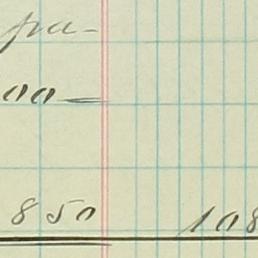 pa-
00—
850 108